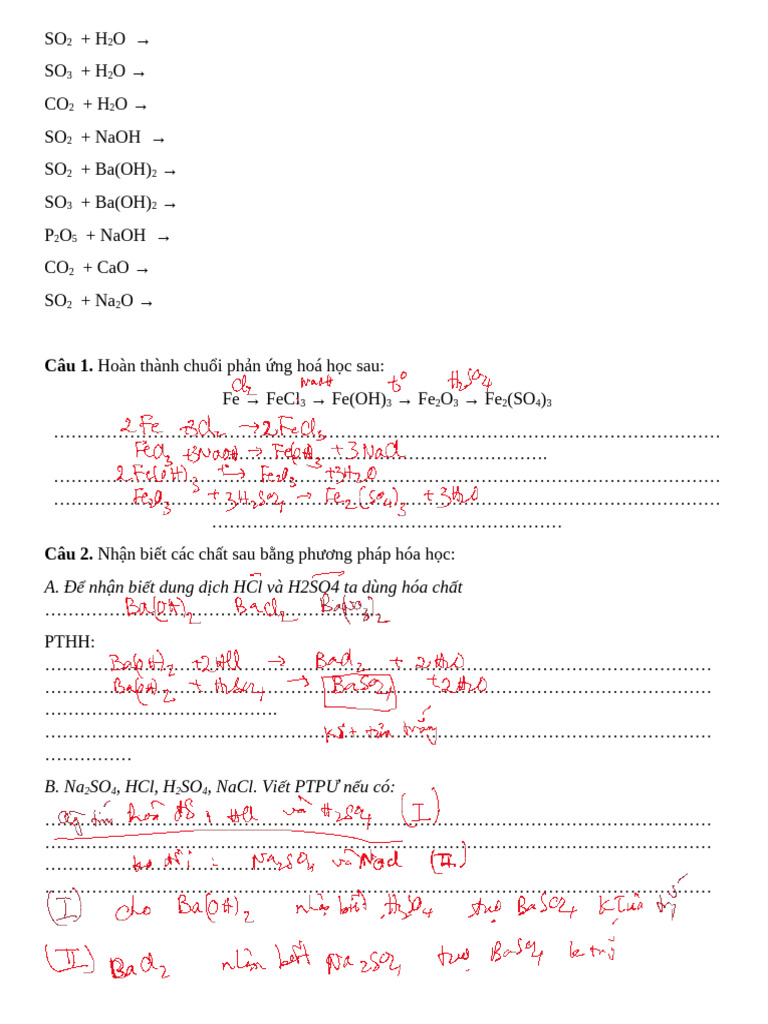 SO₂ + H₂O →
SO₃ + H₂O →
CO₂ + H₂O →
SO₂ + NaOH →
SO₂ + Ba(OH)₂ →
SO₃ + Ba(OH)₂ →
P₂O₅ + NaOH →
CO₂ + CaO →
SO₂ + Na₂O →
Câu 1. Hoàn thành chuổi phản ứng hoá học sau:
Cl₂ NaOH t° H₂SO₄
Fe → FeCl₃ → Fe(OH)₃ → Fe₂O₃ → Fe₂(SO₄)₃
2Fe + 3Cl₂ → 2FeCl₃
FeCl₃ + 3NaOH → Fe(OH)₃ + 3NaCl
2Fe(OH)₃ t° → Fe₂O₃ + 3H₂O
Fe₂O₃ + 3H₂SO₄ → Fe₂(SO₄)₃ + 3H₂O
Câu 2. Nhận biết các chất sau bằng phương pháp hóa học:
A. Để nhận biết dung dịch HCl và H2SO4 ta dùng hóa chất
Ba(OH)₂ BaCl₂ Ba(NO₃)₂
PTHH:
Ba(OH)₂ + 2HCl → BaCl₂ + 2H₂O
Ba(OH)₂ + H₂SO₄ → BaSO₄ + 2H₂O
kết tủa trắng
B. Na₂SO₄, HCl, H₂SO₄, NaCl. Viết PTPƯ nếu có:
Qỳ tím hoá đỏ: HCl và H₂SO₄ (I)
ko đổi: Na₂SO₄ và NaCl (II)
(I) cho Ba(OH)₂ nhận biết H₂SO₄ tạo BaSO₄ k tủa
(II) BaCl₂ nhận biết Na₂SO₄ tạo BaSO₄